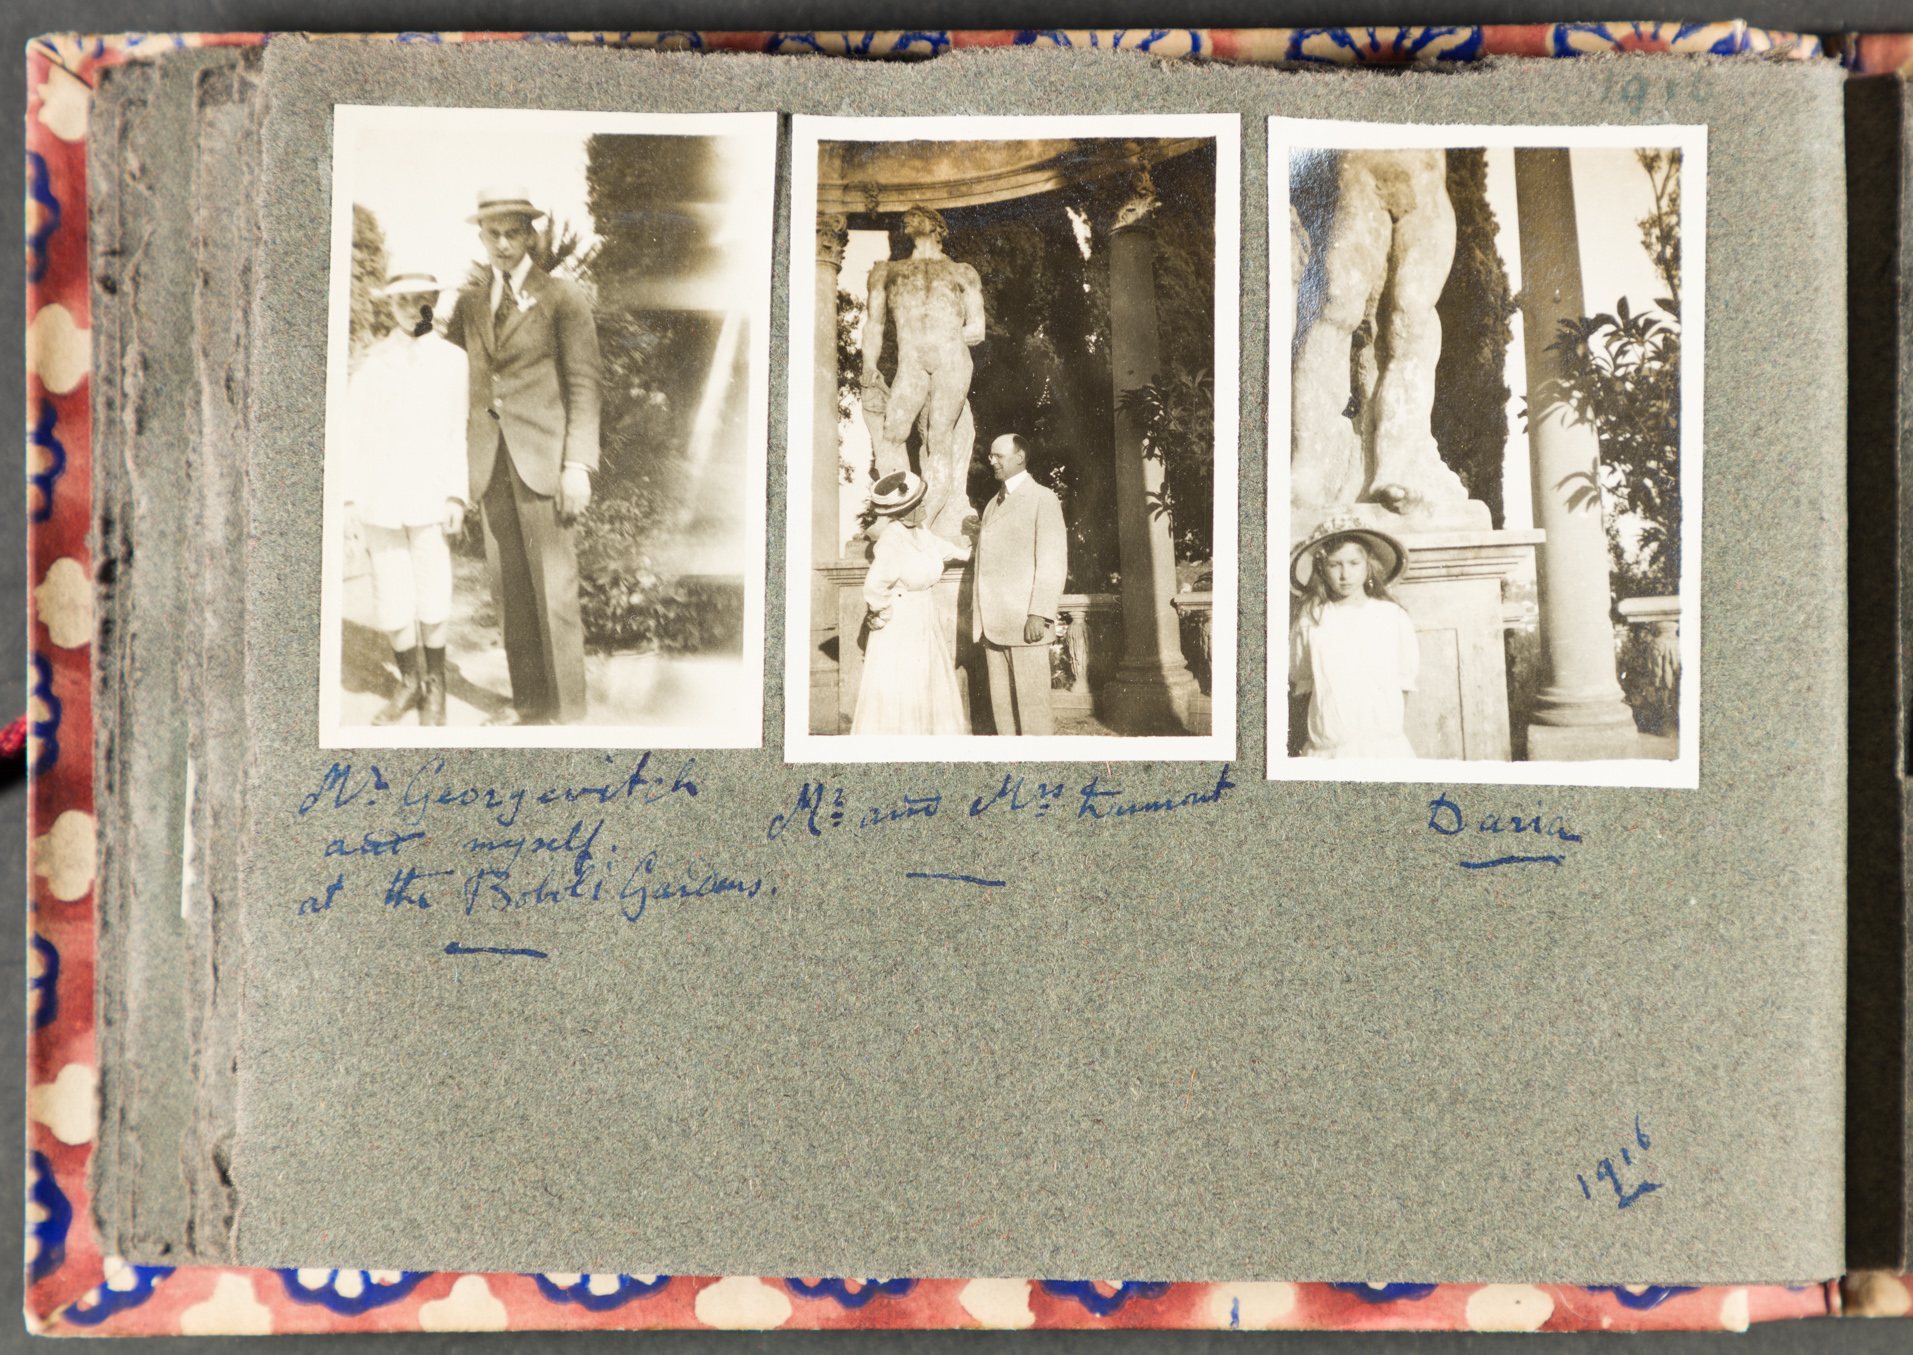 1916
Mr Georgevitch
and myself.
at the Boboli Gardens.
Mr and Mrs Dumont
Daria
1916